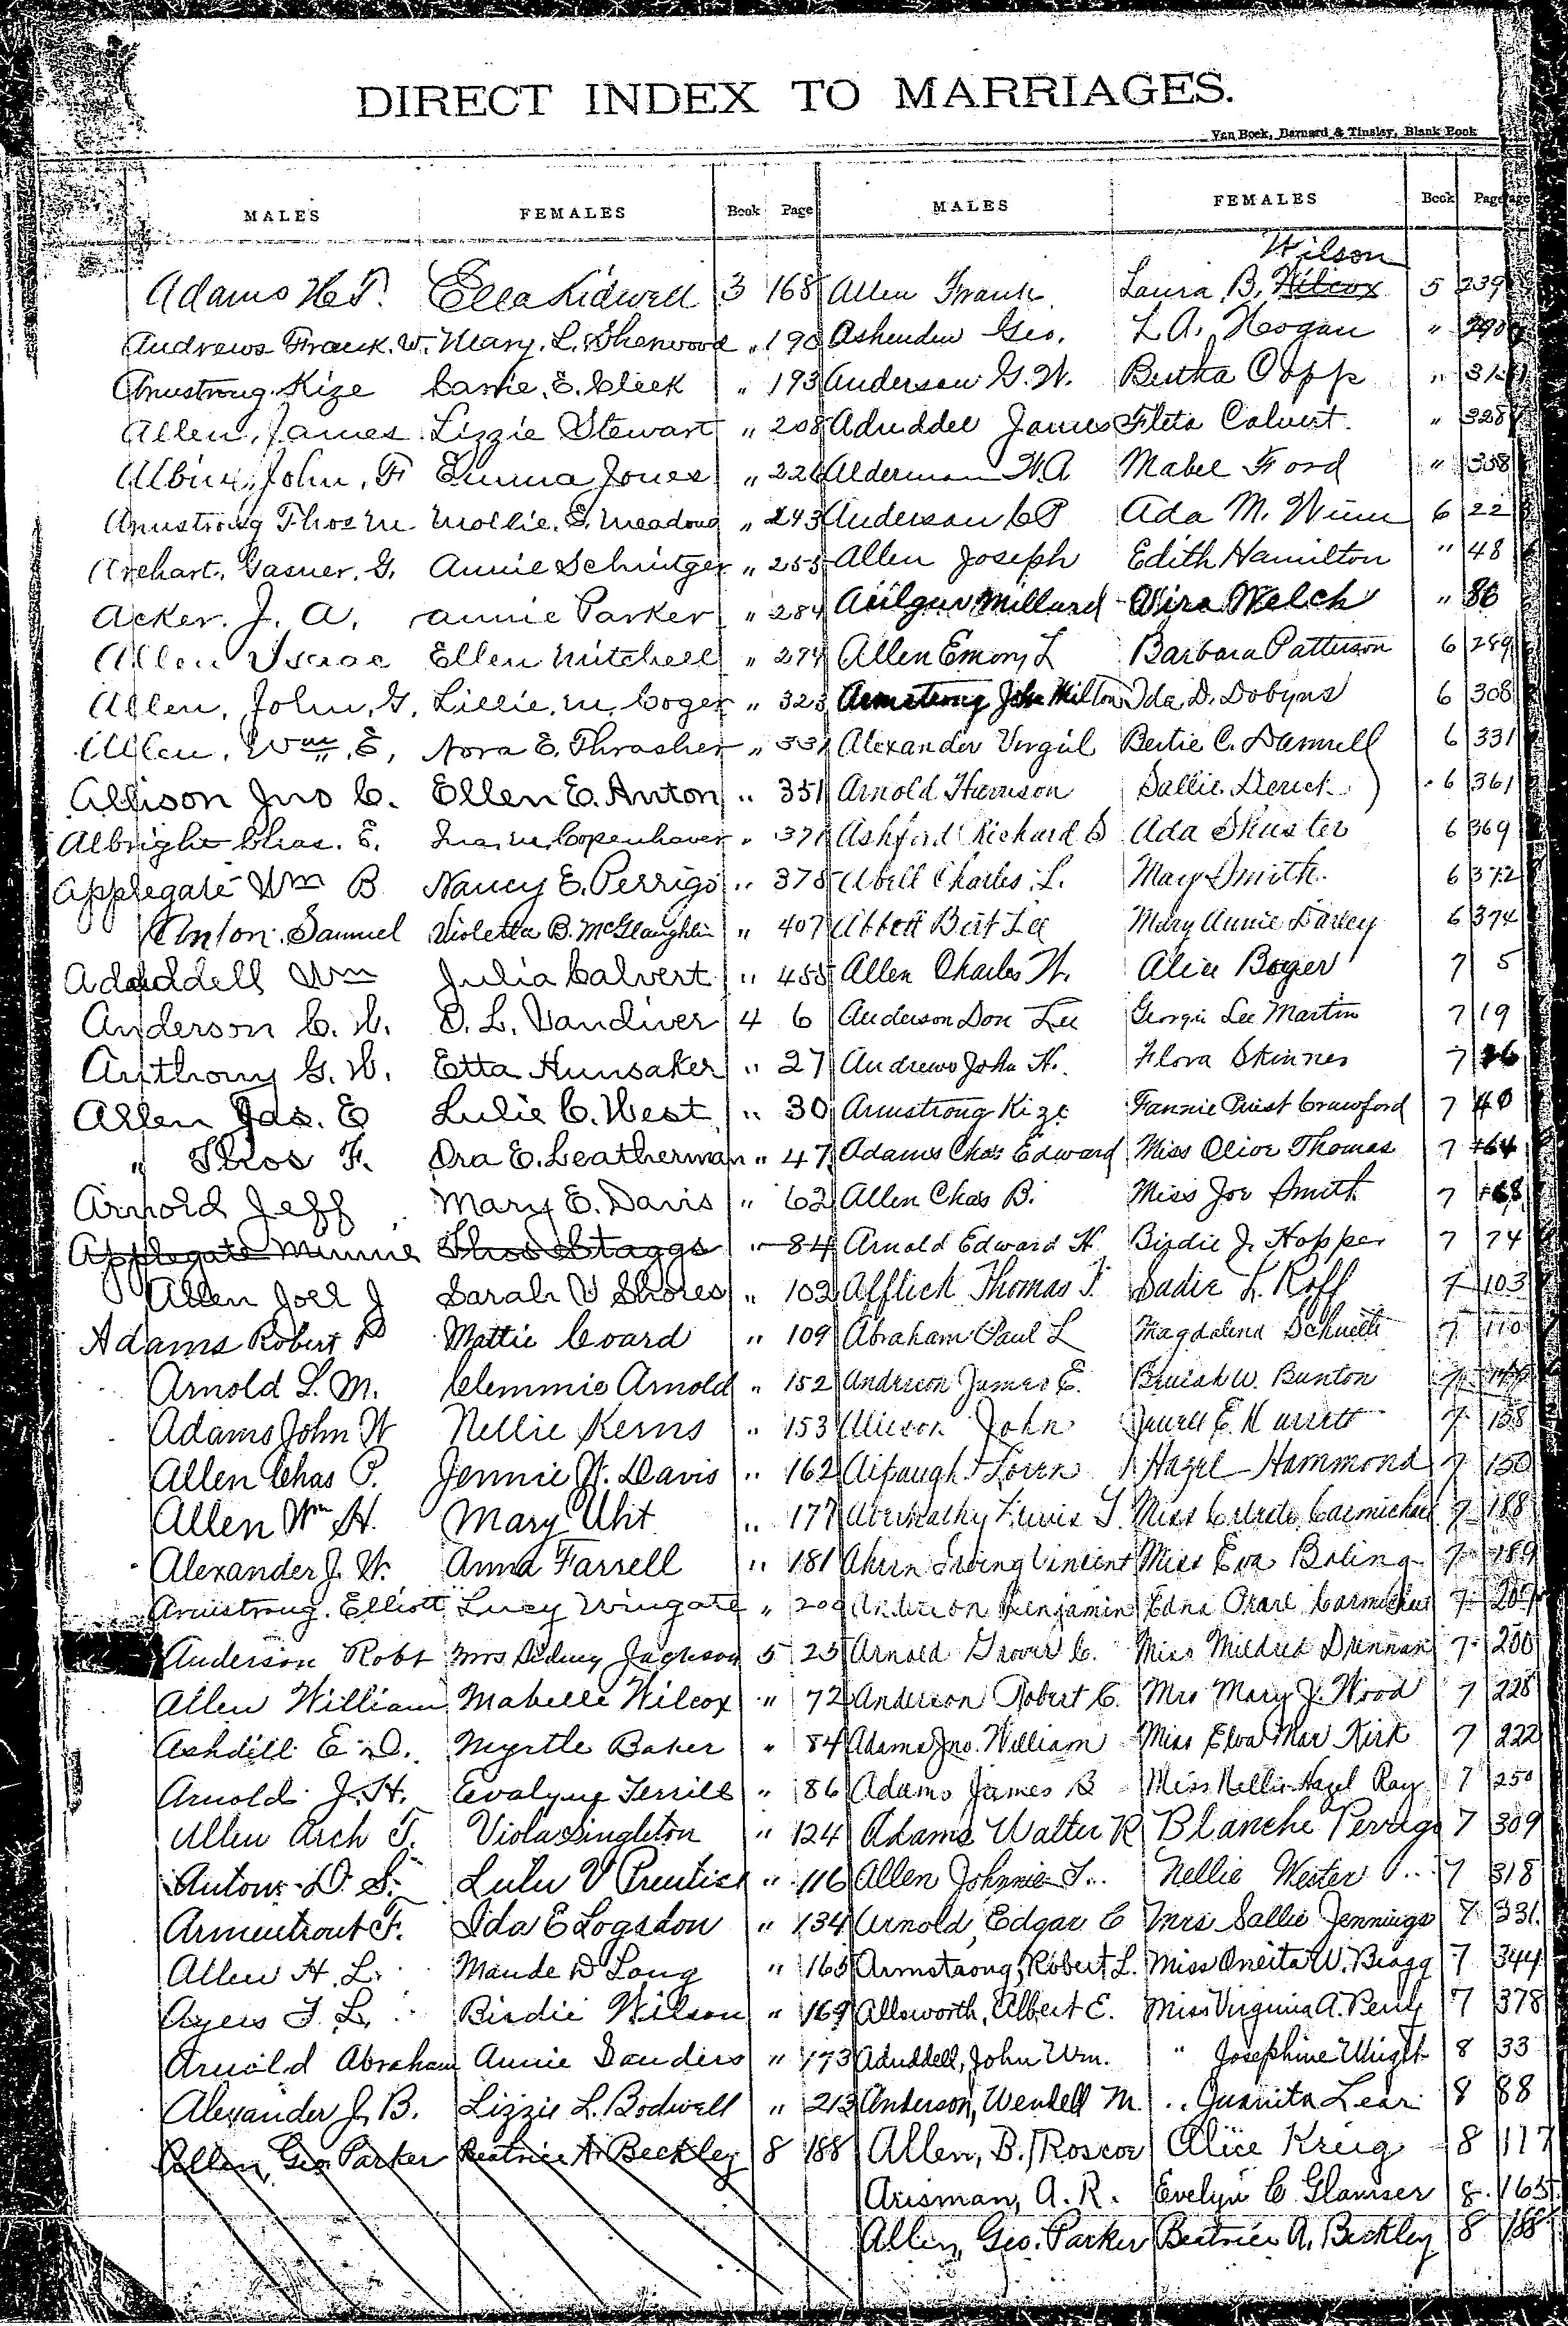 DIRECT INDEX TO MARRIAGES.
Van Boek, Barnard & Tinsley, Blank Book
MALES FEMALES Book Page MALES FEMALES Book Page
Adams H.T. Ella Kidwell 3 168
Andrews Frank. W. Mary. L. Sherwood " 190
Armstrong. Kize Carrie. E. Cleek " 193
Allen, James Lizzie Stewart " 208
Albin, John, F Emma Jones " 226
Armstrong Thos M Mollie. E. Meadows " 243
Arehart. Gasner. G. Annie Schnitger " 255
Acker. J. A. Annie Parker " 284
Allen Isaac Ellen Mitchell " 294
Allen, John, G. Lillie. M. Coger " 323
Allen, Wm. E, Nora E. Thrasher " 331
Allison Jno C. Ellen E. Anton " 351
Albright Chas. E. Copenhaver " 371
Applegate Wm B Nancy E. Perrigo " 378
Anton. Samuel Violetta B. McGlaughlin " 407
Adduddell Wm Julia Calvert " 455
Anderson C. W. O. L. Vandiver 4 6
Anthony G. W. Etta Hunsaker " 27
Allen Jas. E Lulie C. West " 30
" Thos F. Ora E. Leatherman " 47
Arnold Jeff Mary E. Davis " 62
Applegate Minnie Thos Staggs " 84
Allen Joel J Sarah V Shores " 102
Adams Robert P Mattie Coard " 109
Arnold L. M. Clemmie Arnold " 152
Adams John W Nellie Kerns " 153
Allen Chas P. Jennie W. Davis " 162
Allen Wm H. Mary Uht " 177
Alexander J. W. Anna Farrell " 181
Armstrong. Elliott Lucy Wingate " 200
Anderson Robt Mrs Sidney Jackson 5 25
Allen William Mabelle Wilcox " 72
Ashdill E. D. Myrtle Baker " 84
Arnold J. H. Evalyne Terrill " 86
Allen Arch T. Viola Singleton " 124
Anton D. S. Lulu V Prentice " 116
Armentrout F. Ida E Logsdon " 134
Allen H. L. Maude D Long " 165
Ayers T. L. Birdie Wilson " 169
Arnold Abraham Annie Sanders " 173
Alexander J. B. Lizzie L. Bodwell " 213
Allen, Geo. Parker Beatrice A. Beckley 8 188
Wilson
Allen Frank Laura B. Wilcox 5 239
Ashenden Geo. L. A. Hogan " 290
Anderson G. W. Bertha Copp " 31
Aduddel James Fleta Calvert. " 328
Alderman W. A Mabel Ford " 358
Anderson C P Ada M. Winn 6 22
Allen Joseph Edith Hamilton " 48
Millard Welch " 86
Allen Emory L Barbara Patterson 6 289
Armstrong John Milton Ida D. Dobyns 6 308
Alexander Virgil Bertie C. Damrell 6 331
Arnold Harrison Sallie Derick 6 361
Ashford Richard B Ada Shuster 6 369
Abell Charles L. Mary Smith. 6 372
Abbott Bert Lee Mary Annie Darley 6 374
Allen Charles W. Alice Boyer 7 5
Anderson Don Lee Georgie Lee Martin 7 19
Andrews John H. Flora Skinner 7 26
Armstrong Kize Fannie Priest Crawford 7 40
Adams Chas Edward Miss Olive Thomas 7 64
Allen Chas B. Miss Joe Smith 7 68
Arnold Edward H Birdie J. Hopper 7 74
Afflick Thomas J. Sadie L. Roff 7 103
Abraham Paul L Magdalena Schuette 7 110
Anderson James E. Beulah W. Bunton 7
Allison John 7 158
Alpaugh Loren Hazel Hammond 7 150
Aberkathy Lewis T. Miss Celeste Carmichael 7 188
Ahern Irving Vincent Miss Eva Boling 7 189
Anderson Benjamin Edna Pearl Carmichael 7 207
Arnold Grover C. Miss Mildred Drennan 7 200
Anderson Robert C. Mrs Mary J. Wood 7 228
Adams Jno. William Miss Elva Mae Kirk 7 222
Adams James B Miss Nellie Hazel Ray 7 250
Adams Walter R Blanche Perrigo 7 309
Allen Johnnie T. Nellie Wester 7 318
Arnold, Edgar C Mrs Sallie Jennings 7 331.
Armstrong, Robert L. Miss Oneita W. Bragg 7 344
Allsworth, Albert E. Miss Virginia A. Penly 7 378
Aduddell, John Wm. " Josephine Wright 8 33
Anderson, Wendell M. " Juanita Lear 8 88
Allen, B. Roscoe Alice Krieg 8 117
Arisman, A. R. Evelyn C. Glamser 8 165
Allen, Geo. Parker Beatrice A. Beckley 8 188